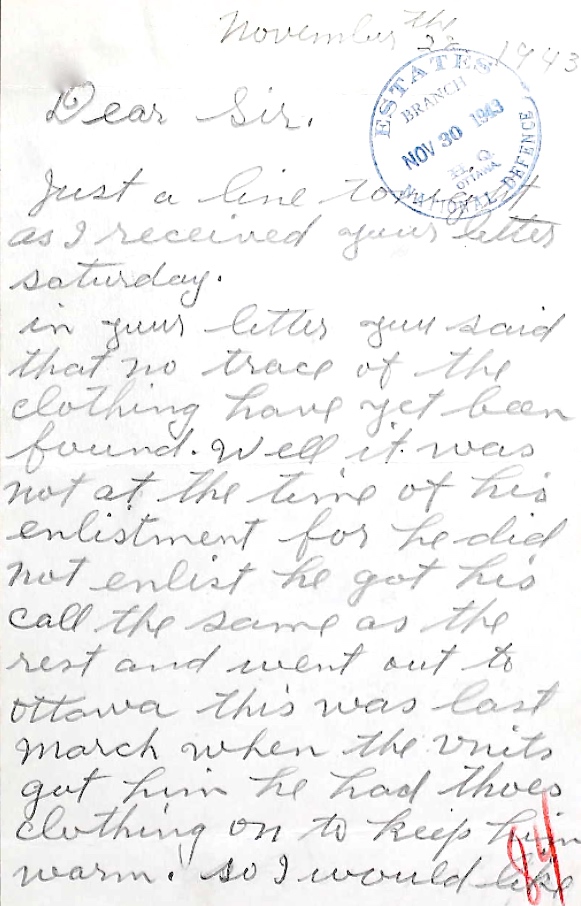 November the
22 1943
ESTATES
BRANCH
NOV 30 1943
OTTAWA
NATIONAL DEFENCE
Dear Sir.
Just a line to
as I received your letter
saturday.
in your letter you said
that no trace of the
clothing have yet been
found. Well it was
not at the time of his
enlistment for he did
not enlist he got his
call the same as the
rest and went out to
ottawa this was last
March when the Units
got him he had thoes
clothing on to keep him
warm. so I would like
84